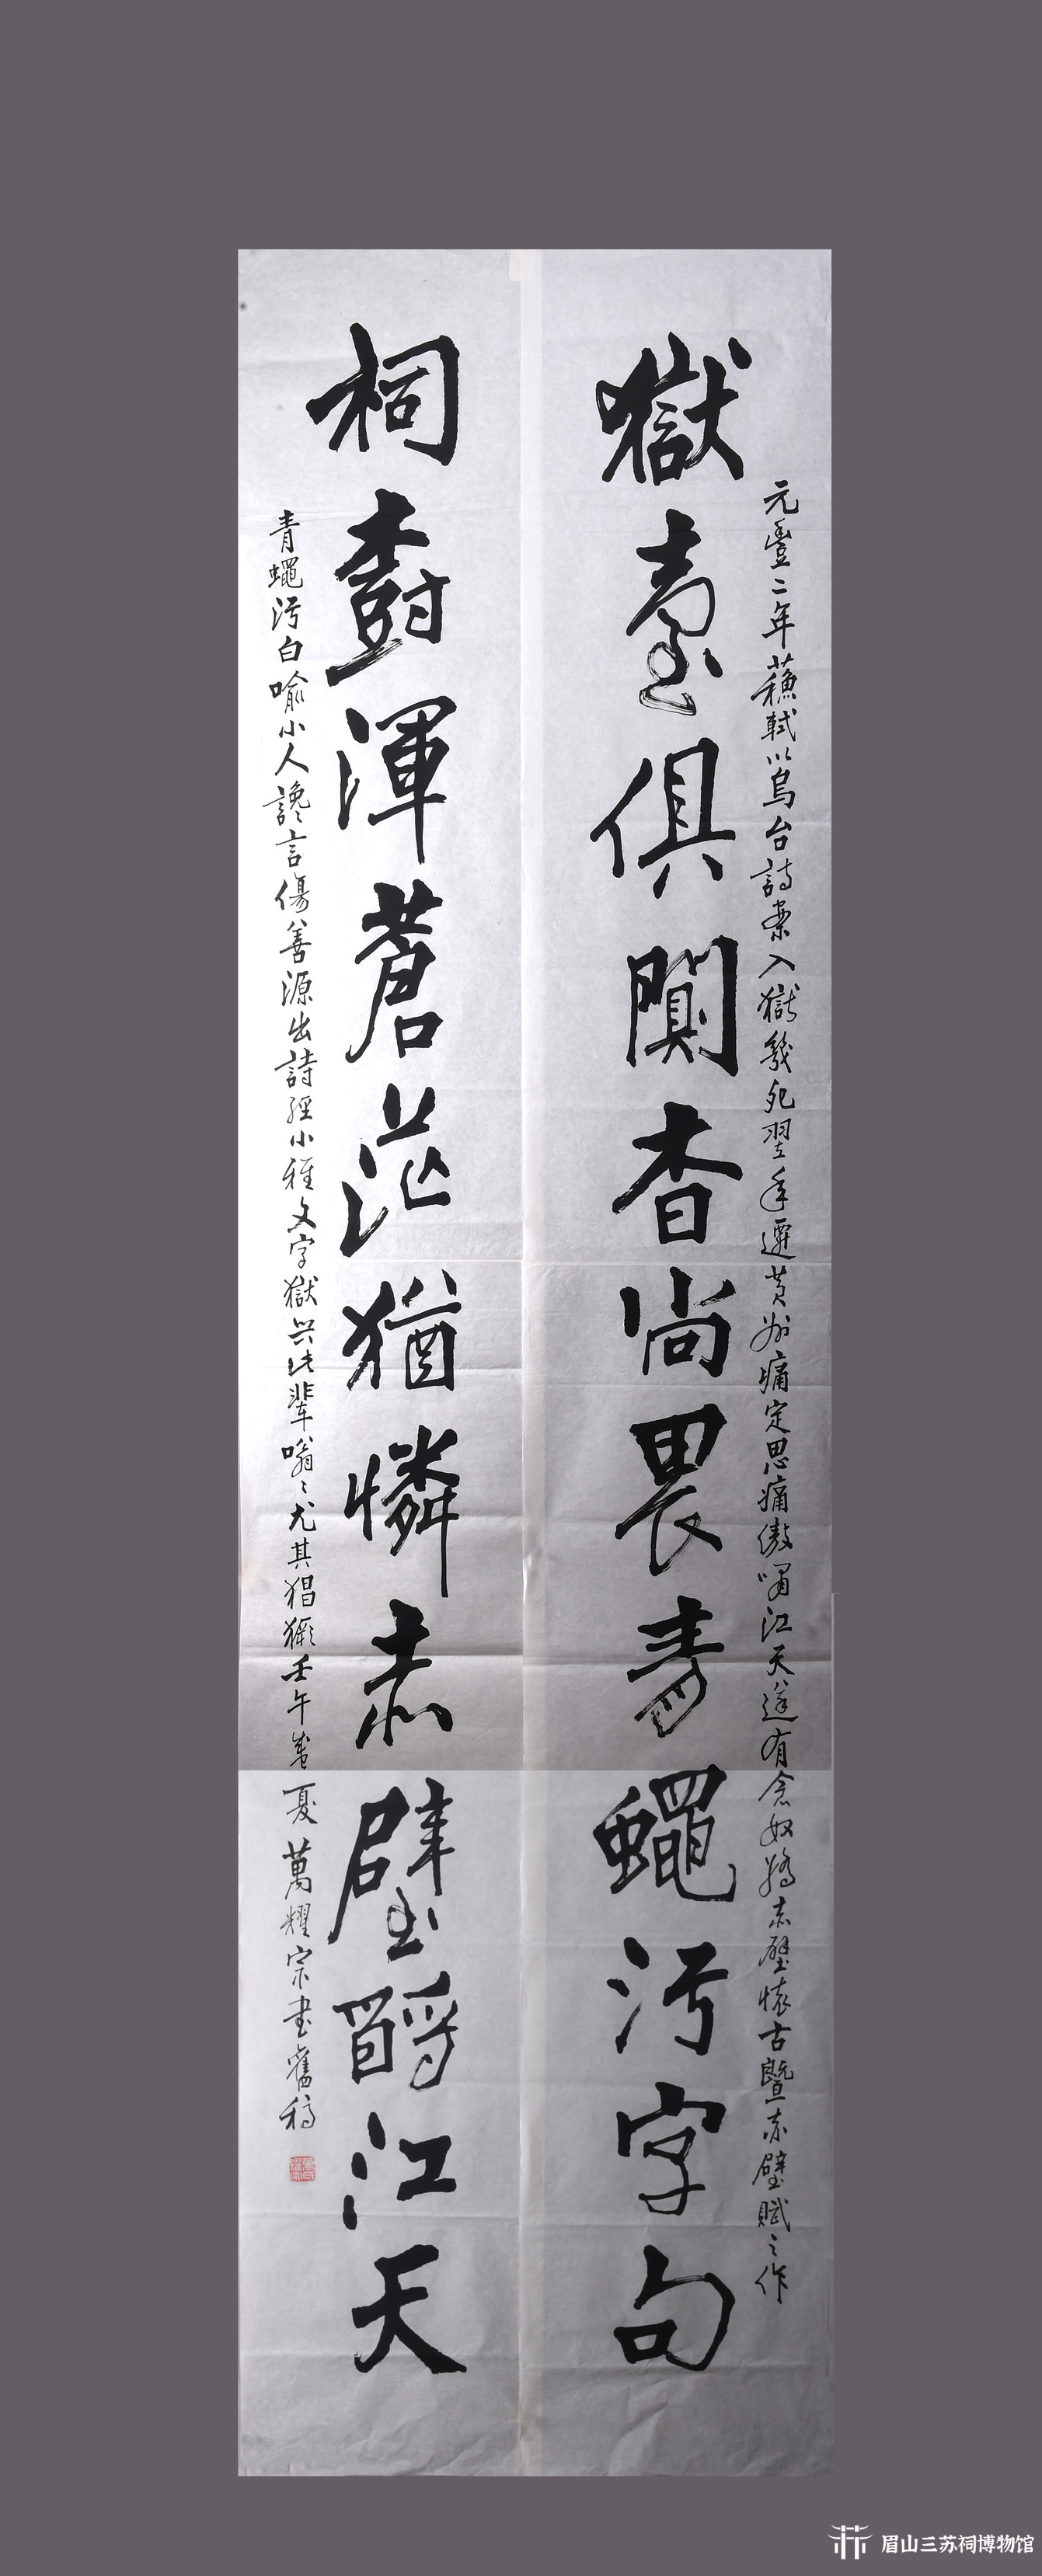 元豐二年蘓軾以烏台詩案入獄幾死翌年遷黄州痛定思痛傲嘯江天遂有念奴嬌赤壁懷古暨赤壁賦之作
獄臺俱闃杳尚畏青蠅污字句
祠樹渾蒼茫猶憐赤壁酹江天
青蠅污白喻小人讒言傷善源出詩經小雅文字獄興此輩嗡々尤其猖獗壬午夏萬耀宗書舊稿
眉山三苏祠博物馆